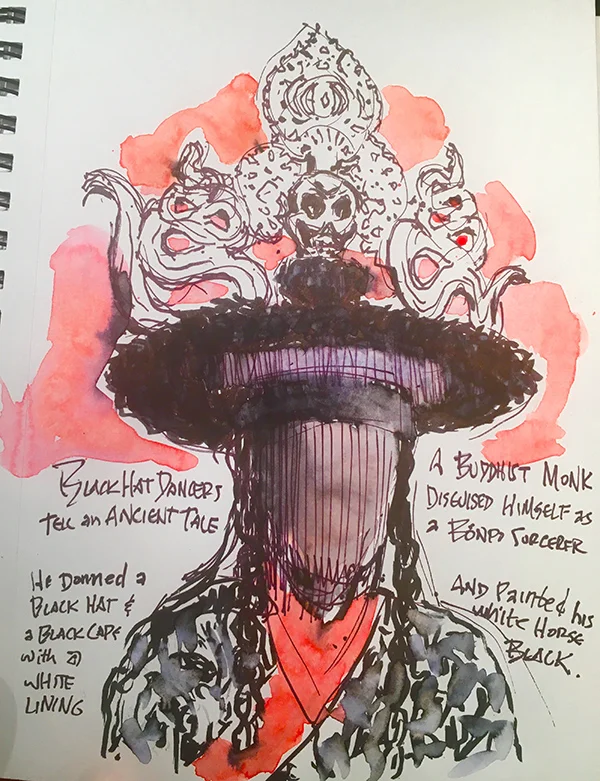 Black Hat Dancers
tell an Ancient Tale
A Buddhist Monk
Disguised Himself as
a Bonpo Sorcerer
He Donned a
Black Hat &
a Black Cape
with a
White
Lining
And Painted his
White Horse
Black.